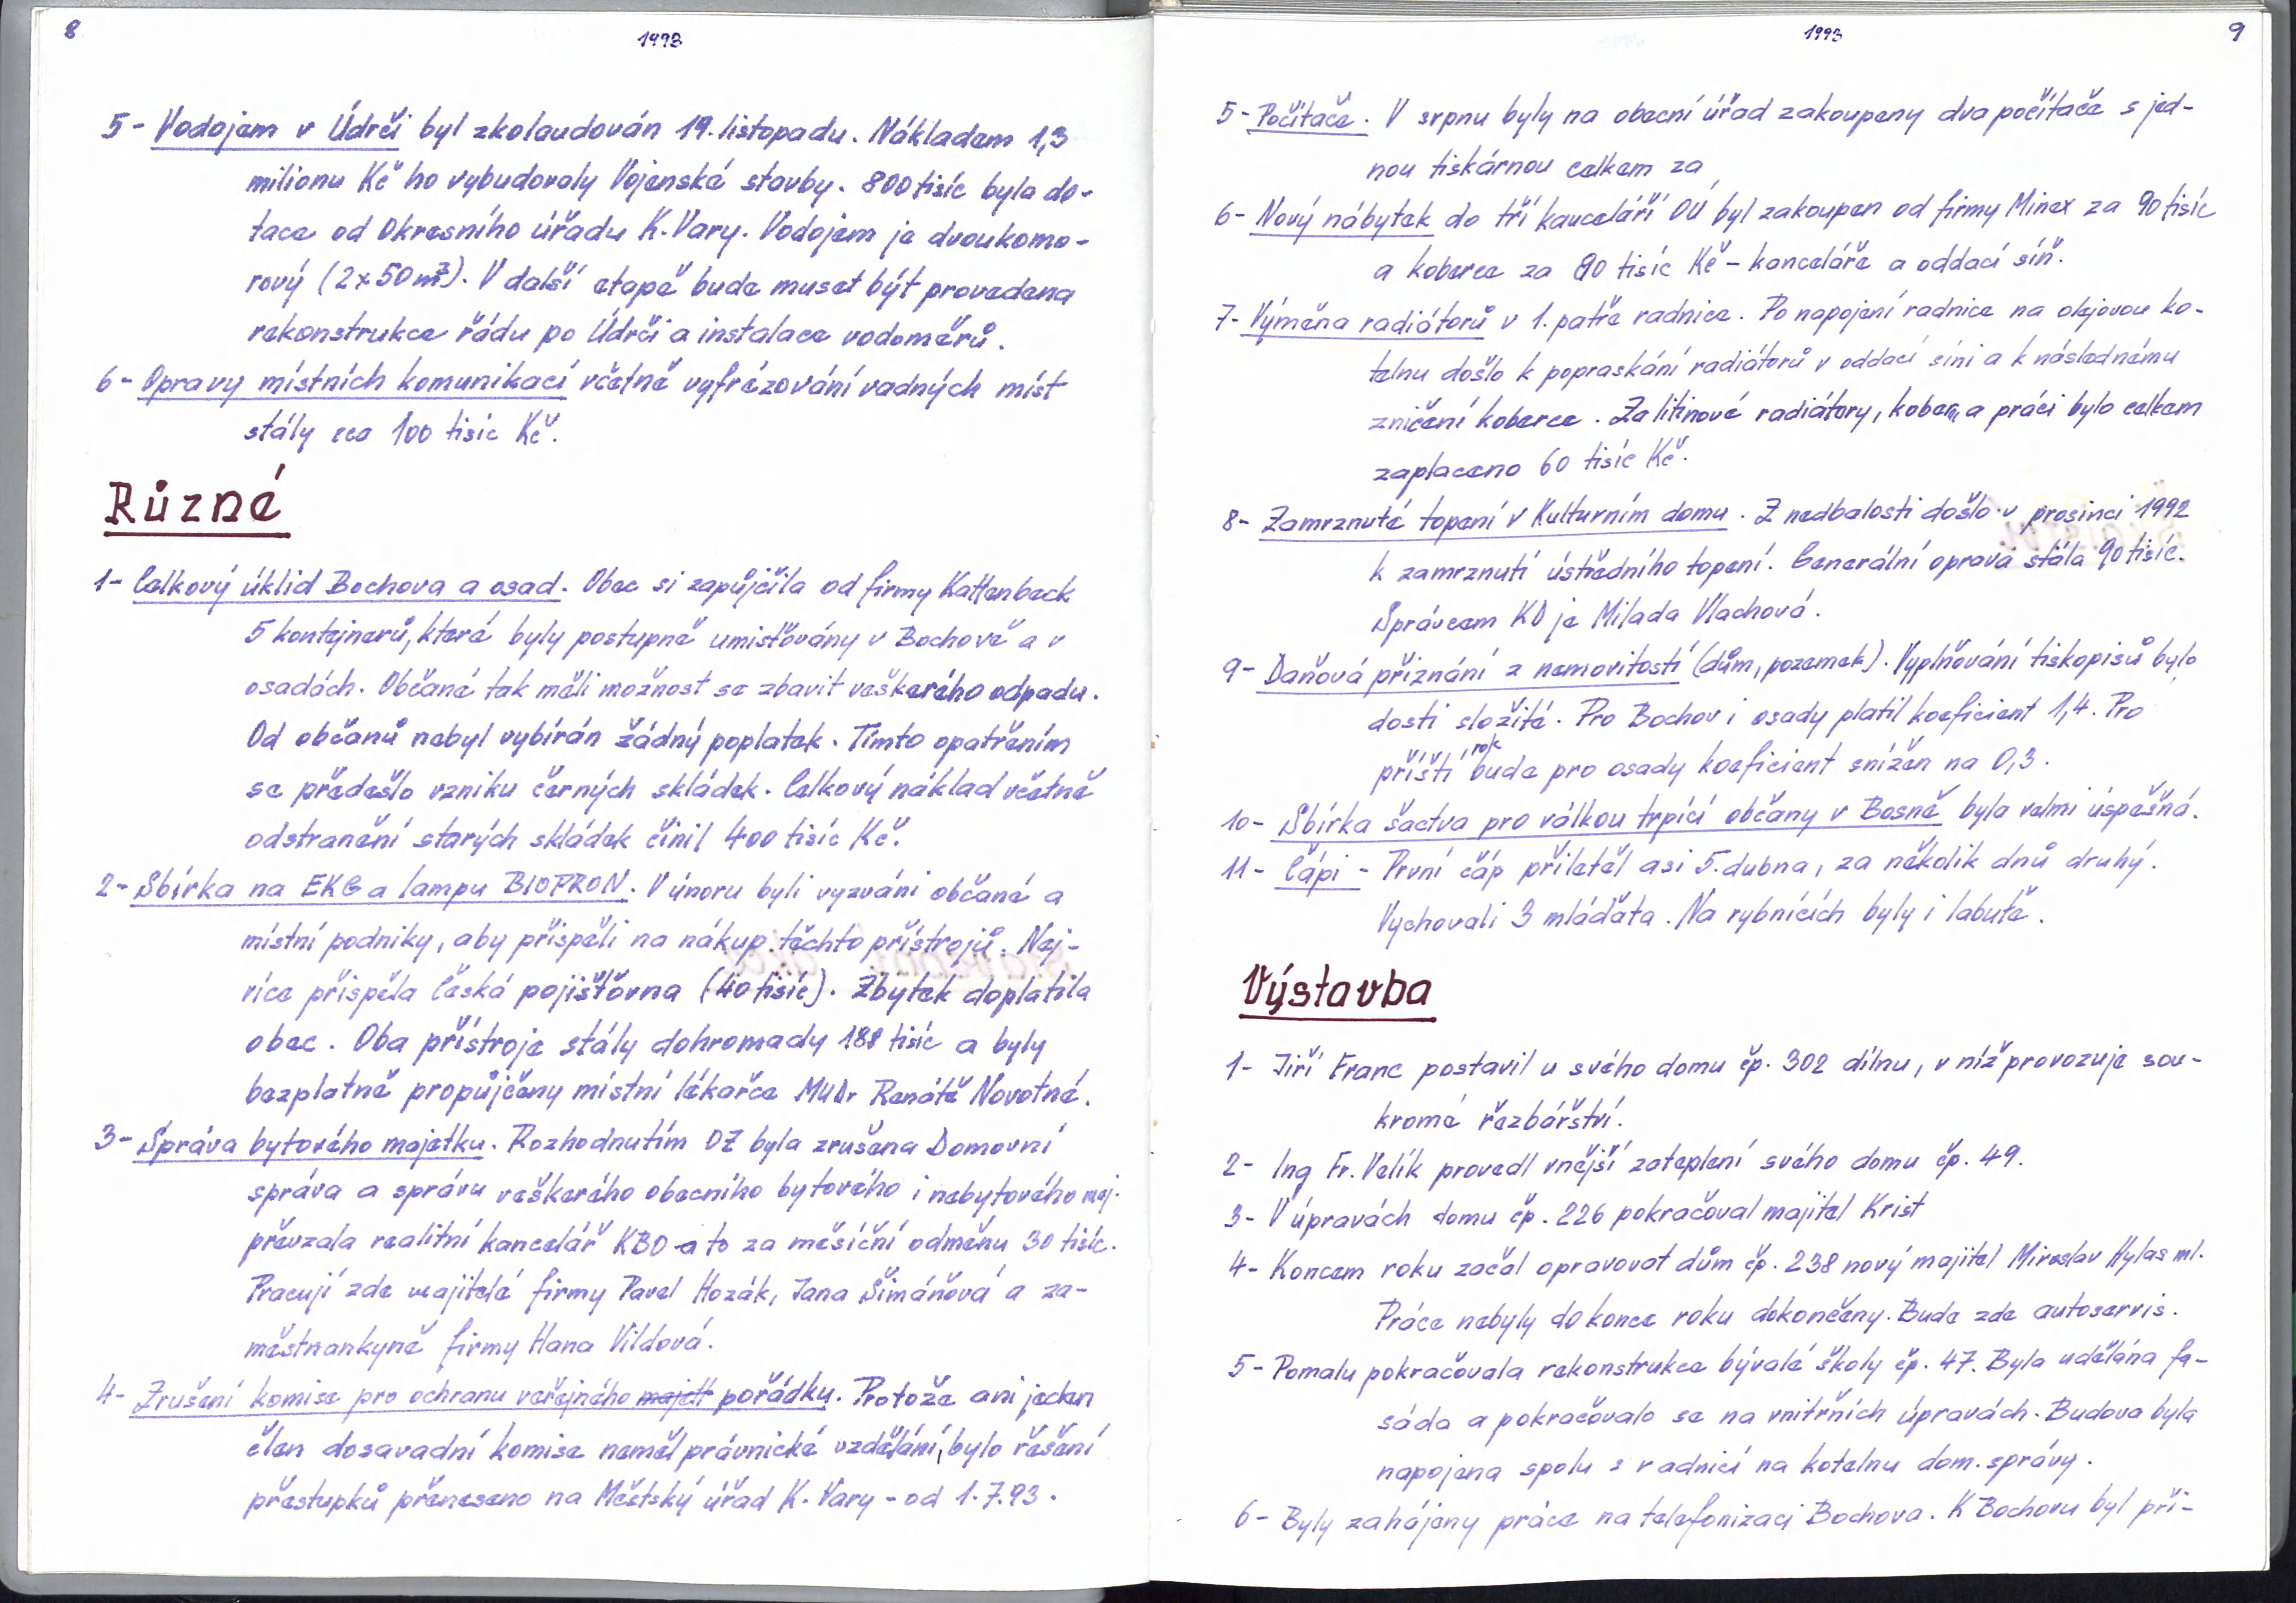 8
1993
5- Vodojem v Údrči byl zkolaudován 19. listopadu. Nákladem 1,3
milionu Kč ho vybudovaly Vojenské stavby. 800 tisíc byla do-
tace od Okresního úřadu K. Vary. Vodojem je dvoukomo-
rový (2x50m³). V další etapě bude muset být provedena
rekonstrukce řádu po Údrči a instalace vodoměrů.
6- Opravy místních komunikací včetně vyfrézování vadných míst
stály cca 100 tisíc Kč.
Různé
1- Celkový úklid Bochova a osad. Obec si zapůjčila od firmy Kattenbeck
5 kontejnerů, které byly postupně umisťovány v Bochově a v
osadách. Občané tak měli možnost se zbavit veškerého odpadu.
Od občanů nebyl vybírán žádný poplatek. Tímto opatřením
se předešlo vzniku černých skládek. Celkový náklad včetně
odstranění starých skládek činil 400 tisíc Kč.
2- Sbírka na EKG a lampu BIOPRON. V únoru byli vyzváni občané a
místní podniky, aby přispěli na nákup těchto přístrojů. Nej-
více přispěla Česká pojišťovna (40 tisíc). Zbytek doplatila
obec. Oba přístroje stály dohromady 188 tisíc a byly
bezplatně propůjčeny místní lékařce MUDr Renátě Novotné.
3- Správa bytového majetku. Rozhodnutím OZ byla zrušena Domovní
správa a správu veškerého obecního bytového i nebytového maj.
převzala realitní kancelář KBO a to za měsíční odměnu 30 tisíc.
Pracují zde majitelé firmy Pavel Hozák, Jana Šimáňová a za-
městnankyně firmy Hana Vildová.
4- Zrušení komise pro ochranu veřejného majett pořádku. Protože ani jeden
člen dosavadní komise neměl právnické vzdělání, bylo řešení
přestupků přeneseno na Městský úřad K. Vary - od 1.7.93.
1993
9
5- Počítače. V srpnu byly na obecní úřad zakoupeny dva počítače s jed-
nou tiskárnou celkem za
6- Nový nábytek do tří kanceláří OÚ byl zakoupen od firmy Minex za 90 tisíc
a koberce za 80 tisíc Kč - kanceláře a oddací síň.
7- Výměna radiátorů v 1. patře radnice. Po napojení radnice na olejovou ko-
telnu došlo k popraskání radiátorů v oddací síni a k následnému
zničení koberce. Za litinové radiátory, koberec a práci bylo celkem
zaplaceno 60 tisíc Kč.
8- Zamrznuté topení v Kulturním domu. Z nedbalosti došlo v prosinci 1992
k zamrznutí ústředního topení. Generální oprava stála 90 tisíc.
Správcem KD je Milada Vlachová.
9- Daňová přiznání z nemovitostí (dům, pozemek). Vyplňování tiskopisů bylo
dosti složité. Pro Bochov i osady platil koeficient 1,4. Pro
příští rok bude pro osady koeficient snížen na 0,3.
10- Sbírka šactva pro válkou trpící občany v Bosně byla velmi úspěšná.
11- Čápi - První čáp přiletěl asi 5. dubna, za několik dnů druhý.
Vychovali 3 mláďata. Na rybnících byly i labutě.
Výstavba
1- Jiří Franc postavil u svého domu čp. 302 dílnu, v níž provozuje sou-
kromé řezbářství.
2- Ing Fr. Velík provedl vnější zateplení svého domu čp. 49.
3- V úpravách domu čp. 226 pokračoval majitel Krist
4- Koncem roku začal opravovat dům čp. 238 nový majitel Miroslav Hylas ml.
Práce nebyly do konce roku dokončeny. Bude zde autoservis.
5- Pomalu pokračovala rekonstrukce bývalé školy čp. 47. Byla udělána fa-
sáda a pokračovalo se na vnitřních úpravách. Budova byla
napojena spolu s radnicí na kotelnu dom. správy.
6- Byly zahájeny práce na telefonizaci Bochova. K Bochovu byl při-